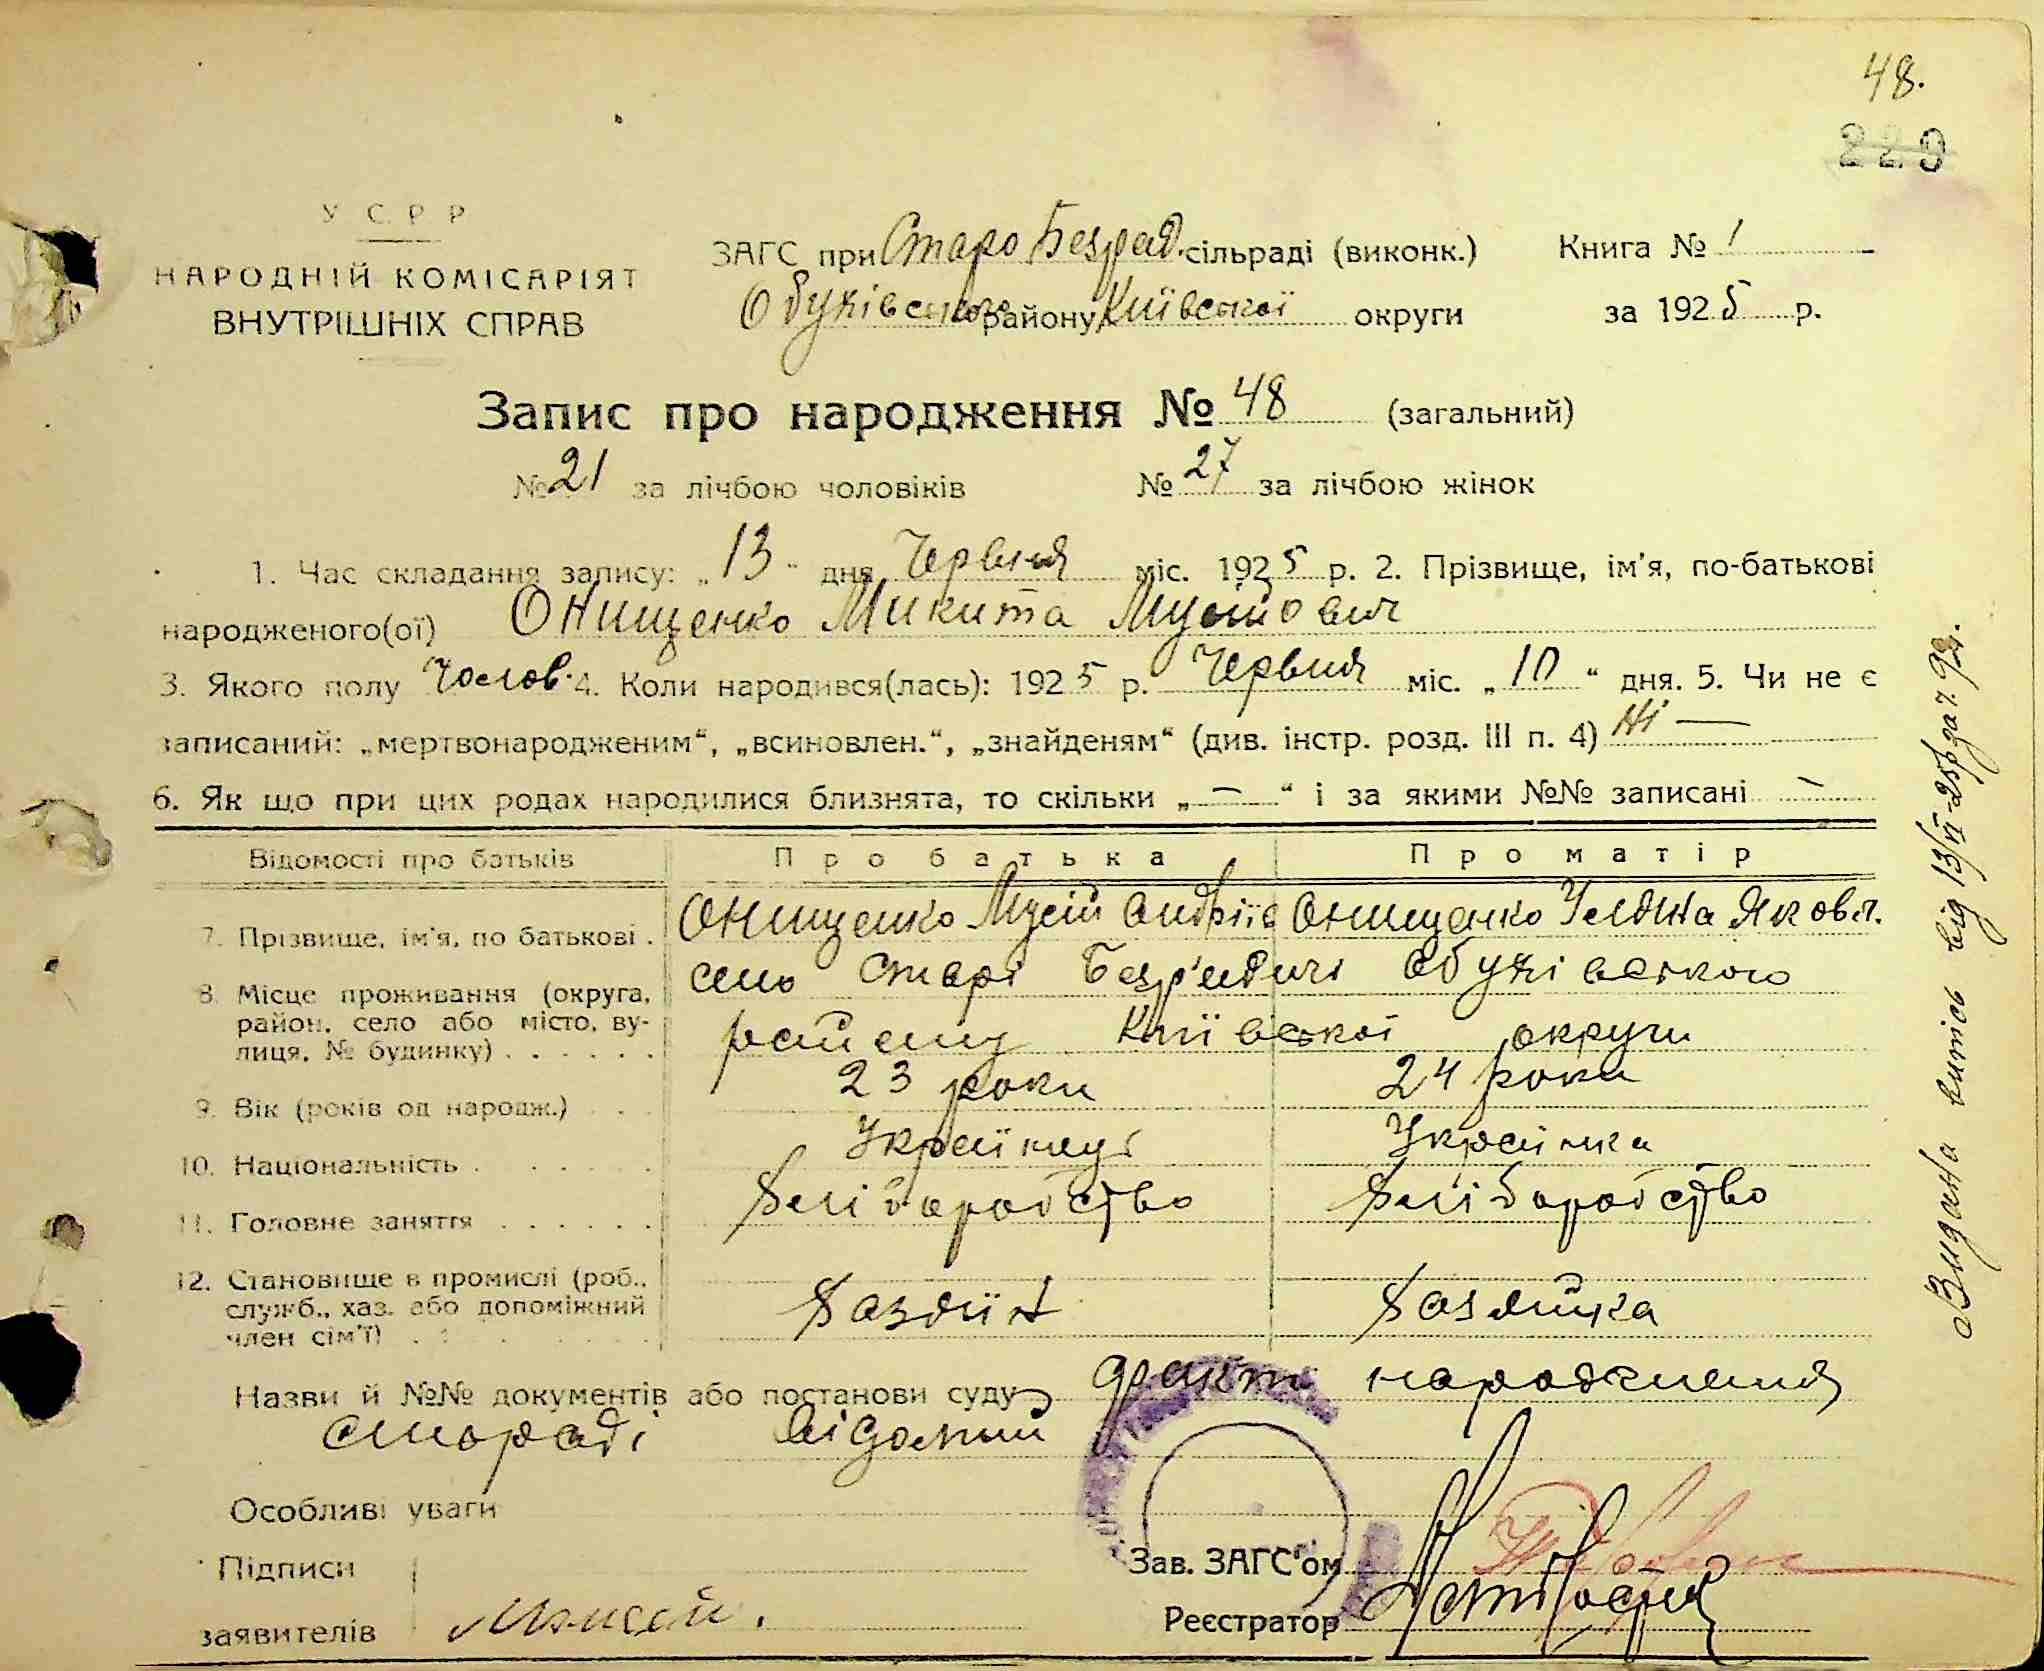 48.
229
У С Р Р
НАРОДНІЙ КОМІСАРІЯТ
ВНУТРІШНІХ СПРАВ
ЗАГС при Старо Безрад. сільраді (виконк.) Книга № 1
Обухівського району Київської округи за 1925 р.
Запис про народження № 48 (загальний)
№ 21 за лічбою чоловіків № 27 за лічбою жінок
1. Час складання запису: „13" дня Червня міс. 1925 р. 2. Прізвище, ім'я, по-батькові
народженого(ої) Онищенко Микита Мусійович
3. Якого полу Чолов. 4. Коли народився(лась): 1925 р. Червня міс. „10" дня. 5. Чи не є
записаний: „мертвонародженим", „всиновлен.", „знайденям" (див. інстр. розд. III п. 4) Ні —
6. Як що при цих родах народилися близнята, то скільки „—" і за якими №№ записані —
Відомості про батьків Про батька Про матір
7. Прізвище, ім'я, по батькові . Онищенко Мусій Андріїв Онищенко Уляна Яковл.
8. Місце проживання (округа, район, село або місто, вулиця, № будинку) . . . . . . село Старі Безрадичі Обухівського
району Київської округи
9. Вік (років од народж.) . . 23 роки 24 роки
10. Національність . . . . . . Українець Українка
11. Головне заняття . . . . . . Хліборобство Хліборобство
12. Становище в промислі (роб., служб., хаз. або допоміжний член сім'ї) . Хазяїн Хазяйка
Назви й №№ документів або постанови суду факт народження
сільраді відомий
Особливі уваги
Підписи
заявителів
Зав. ЗАГС'ом
Реєстратор
Видана випись від 13/VI-25р за ч. 92.